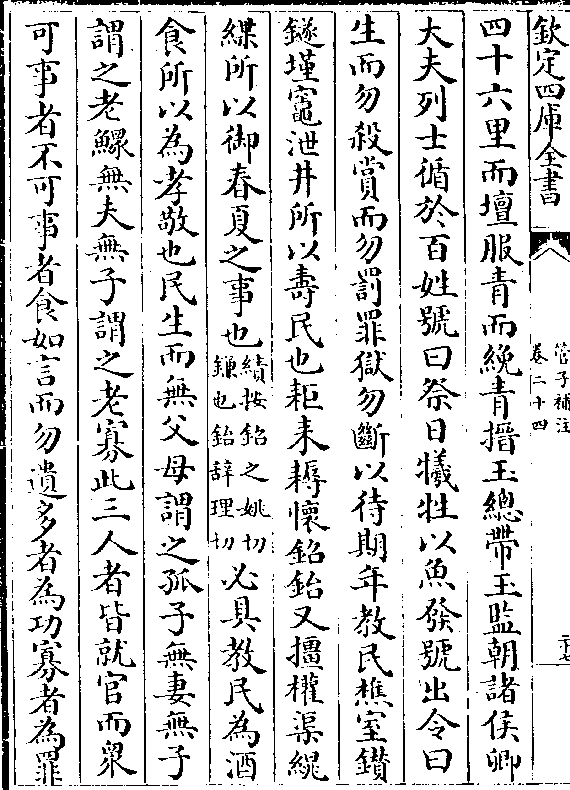 欽定四庫全書
管子補注
卷二十四
四十六里而壇服青而絻青搢玉總帶玉監朝諸侯卿
大夫列士循於百姓號曰祭日犧牲以魚發號出令曰
生而勿殺賞而勿罰罪獄勿斷以待期年教民樵室鑚
鐩墐竈泄井所以壽民也耟耒耨懷鉊鈶又橿權渠繉
緤所以御春夏之事也績按鉊之姚切
鎌也鈶辞理切必具教民為酒
食所以為孝敬也民生而無父母謂之孤子無妻無子
謂之老鰥無夫無子謂之老寡此三人者皆就官而衆
可事者不可事者食如言而勿遺多者為功寡者為罪